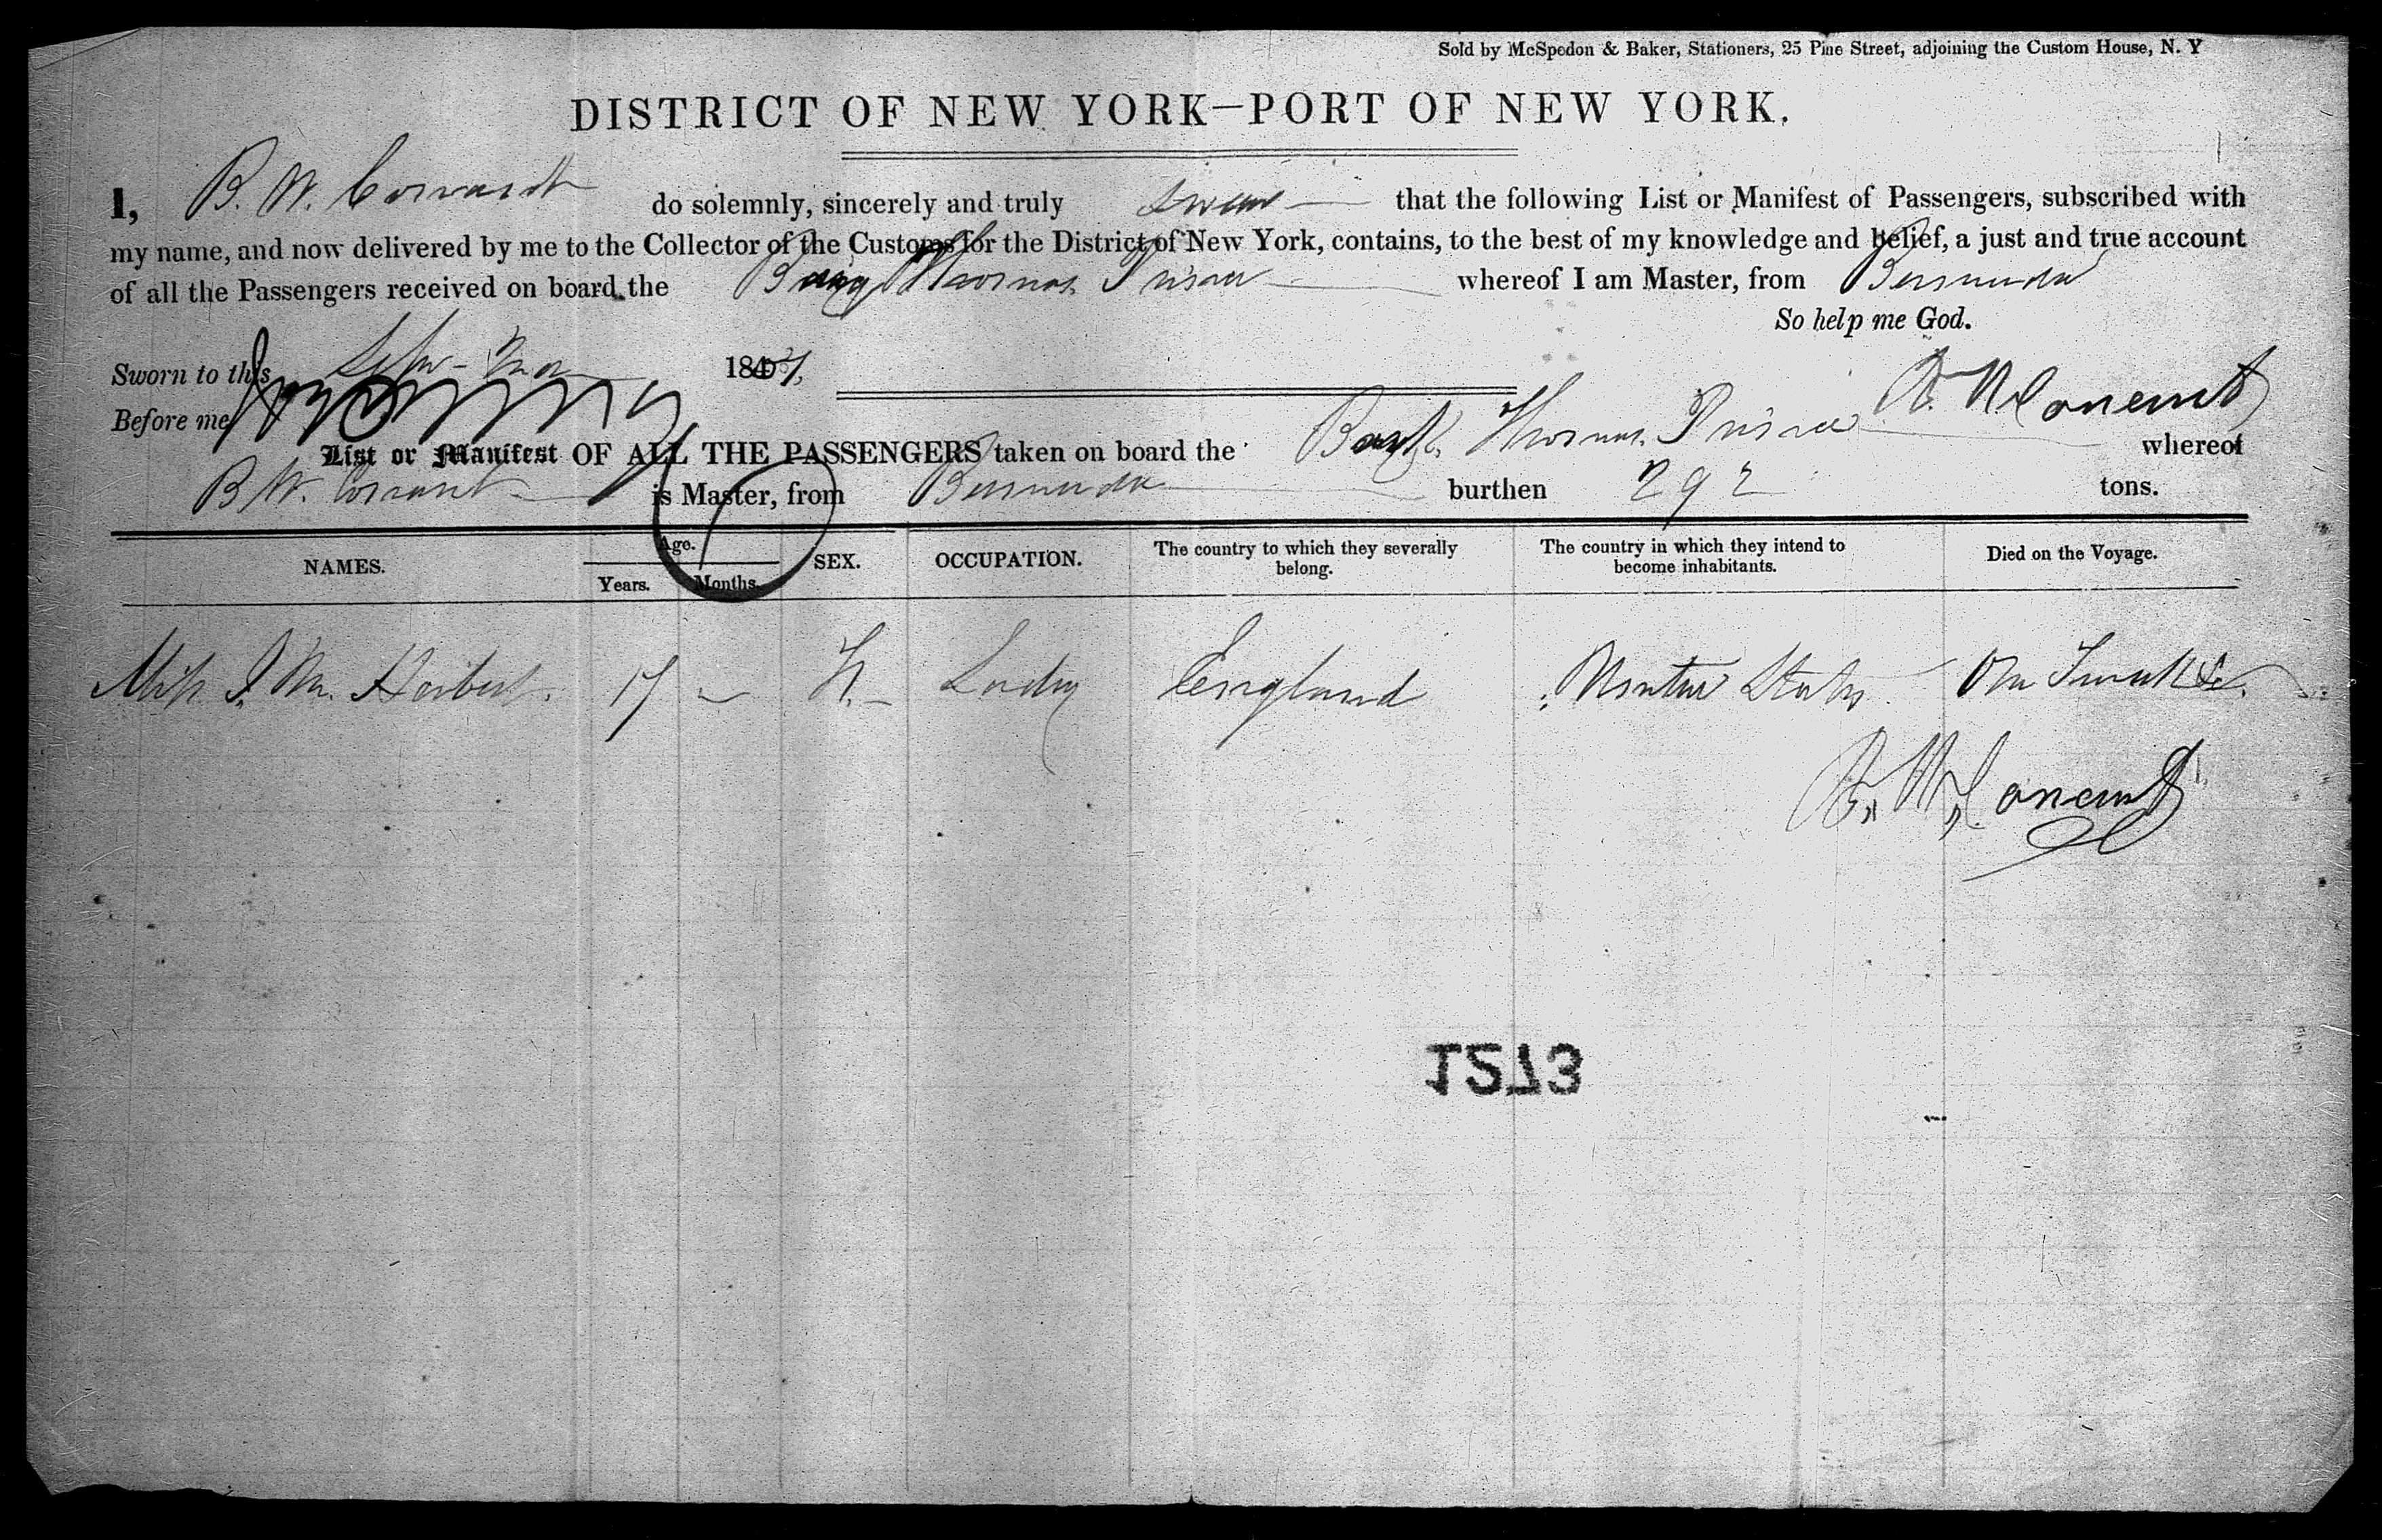 Sold by McSpedon & Baker, Stationers, 25 Pine Street, adjoining the Custom House, N. Y
DISTRICT OF NEW YORK—PORT OF NEW YORK.
I, B. W. do solemnly, sincerely and truly swear that the following List or Manifest of Passengers, subscribed with
my name, and now delivered by me to the Collector of the Customs for the District of New York, contains, to the best of my knowledge and belief, a just and true account
of all the Passengers received on board the Thomas Prince whereof I am Master, from Bermuda
So help me God.
Sworn to this 184
Before me
List or Manifest OF ALL THE PASSENGERS taken on board the Thomas Prince whereof
B W. is Master, from Bermuda burthen 292 tons.
NAMES. Age. Years. Months. SEX. OCCUPATION. The country to which they severally belong. The country in which they intend to become inhabitants. Died on the Voyage.
Miss J. M. Herbert. 17 Lady England United States
1273